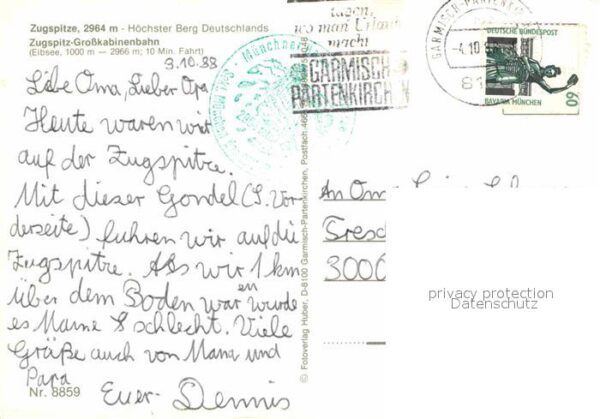 Zugspitze, 2964 m - Höchster Berg Deutschlands
Zugspitz-Großkabinenbahn
(Eibsee, 1000 m — 2966 m; 10 Min. Fahrt)
3.10.88
Liebe Oma, Lieber Opa
Heute waren wir
auf der Zugspitze.
Mit dieser Gondel (S. Vor-
derseite) fuhren wir auf die
Zugspitze. Als wir 1 km
über dem Boden waren wurde
es Mama schlecht. Viele
Grüße auch von Mama und
Papa
Euer Dennis
Nr. 8859
© Fotoverlag Huber, D-8100 Garmisch-Partenkirchen, Postfach
Münchner
wo man Urlaub
macht
GARMISCH
PARTENKIRCHEN
GARMISCH-PARTENKIRCHEN
-4.10
81
DEUTSCHE BUNDESPOST
BAVARIA MÜNCHEN
60
An
3000
privacy protection
Datenschutz